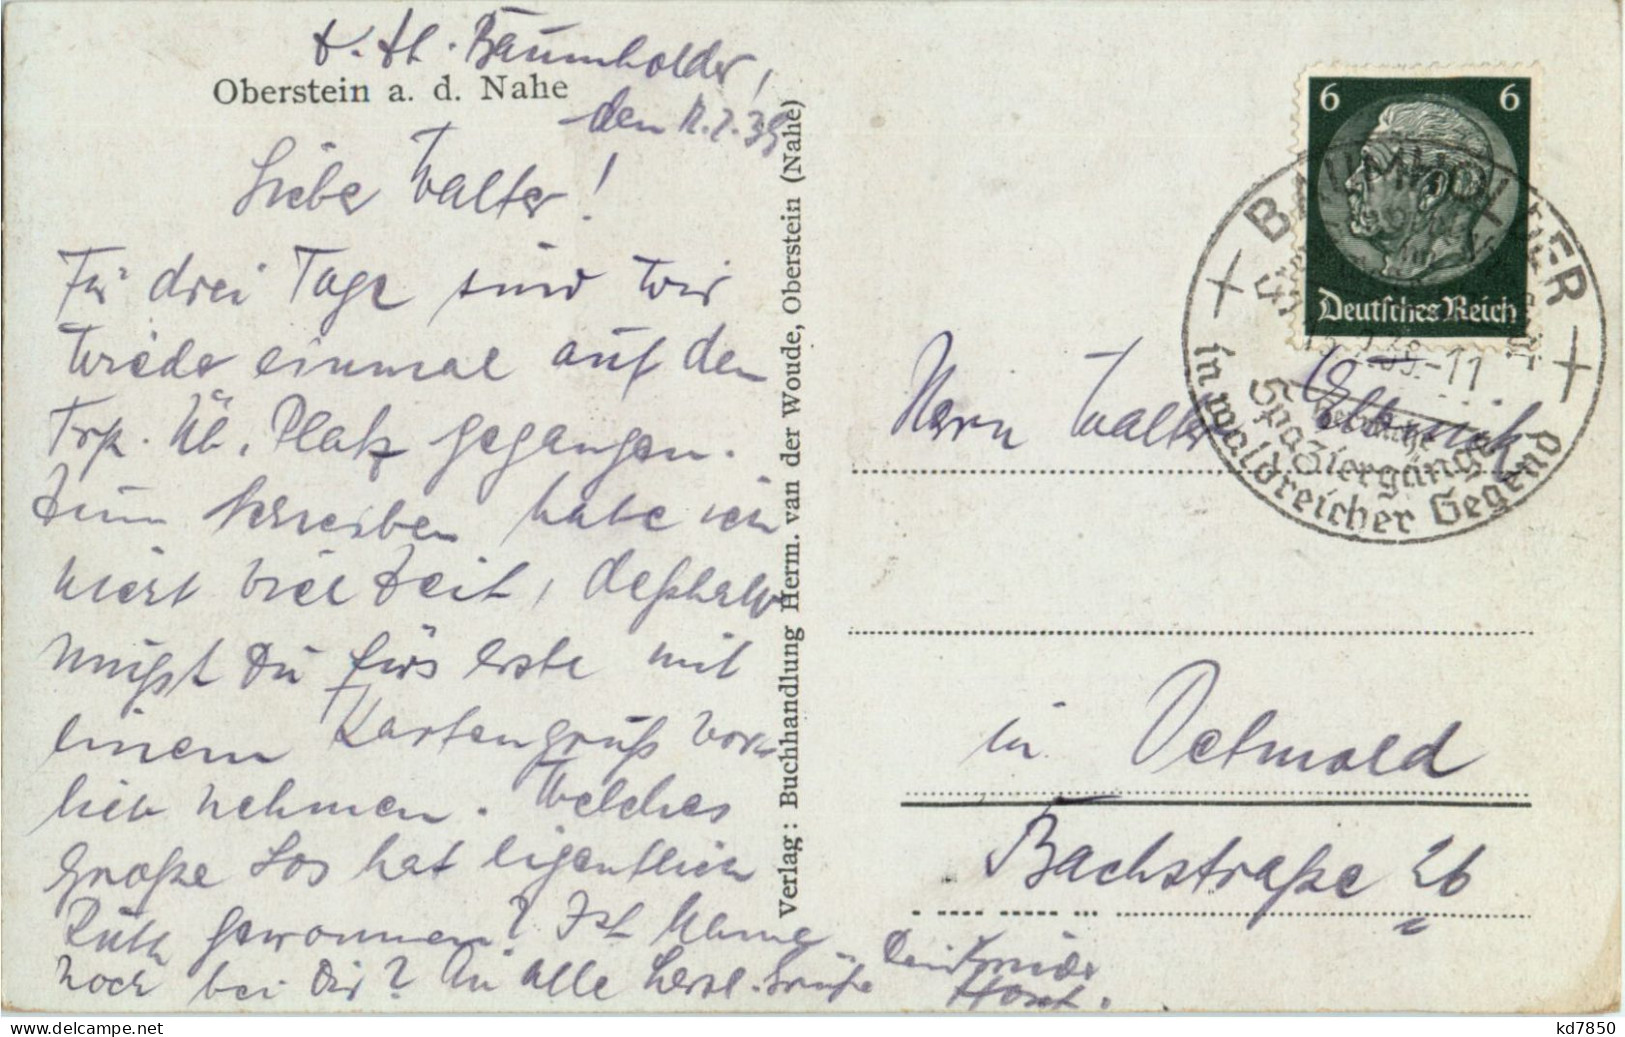 Baumholder,
Oberstein a. d. Nahe
den 12.7.39
Liebe Walter!
Für drei Tage sind wir
wieder einmal auf den
Trp. Üb. Platz gegangen.
Zum Schreiben habe ich
nicht viel Zeit, deßhalb
mußt Du fürs erste mit
einem Kartengruß vor
lieb nehmen. Welches
Große Los hat eigentlich
Ruth gewonnen? Ist Mama
noch bei Dir? An alle herzl. Grüße Dein Bruder
Horst.
Verlag: Buchhandlung Herm. van der Woude, Oberstein (Nahe)
6 6
Deutsches Reich
BAUMHOLDER
-11
Herrliche
Spaziergänge
in waldreicher Gegend
Herrn Walter
in Detmold
Bachstraße 26
kd7850